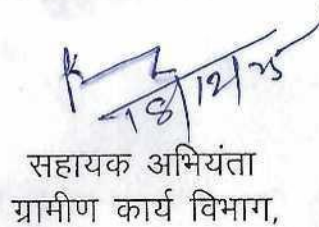 18/12/25
सहायक अभियंता
ग्रामीण कार्य विभाग,